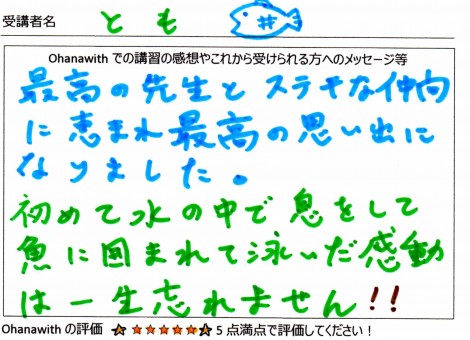 受講者名 とも
Ohanawith での講習の感想やこれから受けられる方へのメッセージ等
最高の先生とステキな仲間
に恵まれ最高の思い出に
なりました。
初めて水の中で息をして
魚に囲まれて泳いだ感動
は一生忘れません!!
Ohanawith の評価 ★★★★★★★ 5 点満点で評価してください！